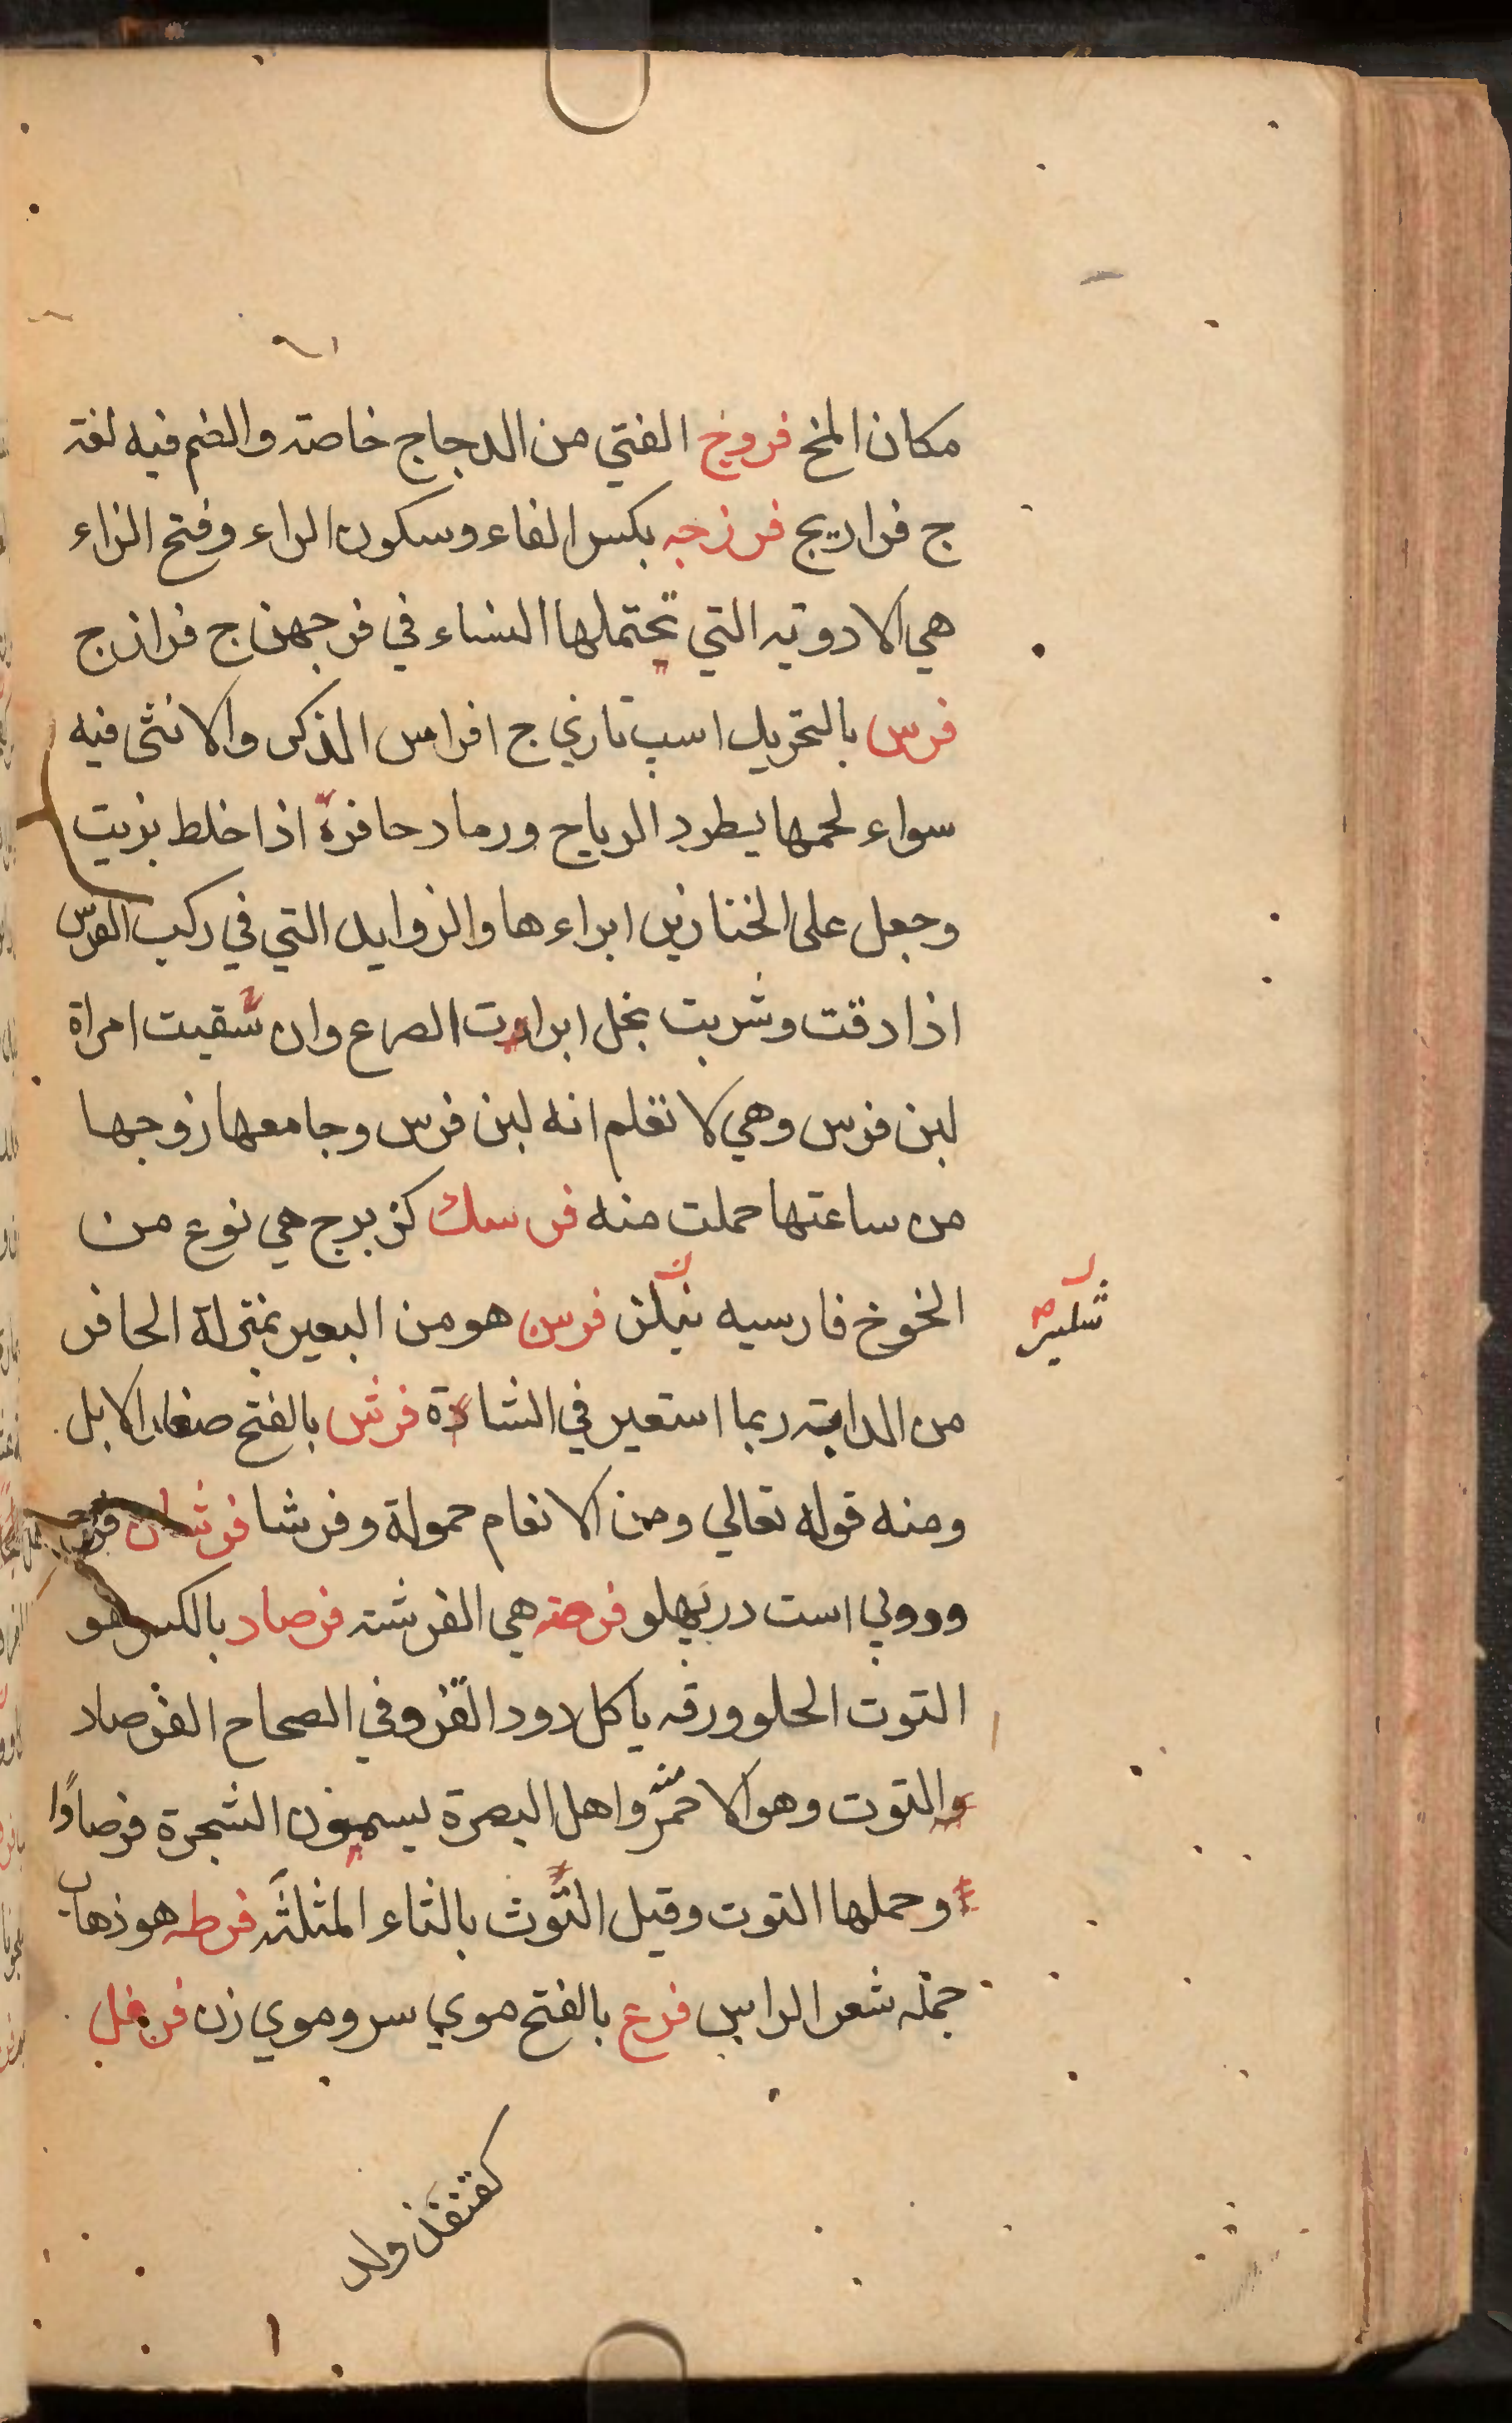 مكان المخ فروخ الفتي من الدجاج خاصته والضم فيه لغة
ج فراريج فرزجه بكسر الفاء وسكون الراء وفتح الزاء
هي الادوية التي تحتملها النساء في فرجهن ج فرازج
فرس بالتحريك اسب تازي ج افراس الذكر والانثى فيه
سواء لحمها يطرد الرياح ورماد حافره اذا خلط بزيت
وجعل على الخنازير ابراءها والزوايد التي في ركب الفرس
اذا دقت وشربت بخل ابرات الصرع وان سقيت امراة
لبن فرس وهي لا تعلم انه لبن فرس وجامعها زوجها
من ساعتها حملت منه فرسك كزبرج هي نوع من
الخوخ فارسيه فرسن هو من البعير بمنزلة الحافر
من الدابته ربما استعير في الشاة فرش بالفتح صغار الابل
ومنه قوله تعالي ومن الانعام حمولة وفرشا
است در پهلو هي الفرشته فرصاد بالكسر هو
التوت الحلو ورقه ياكل دود القز وفي الصحاح الفرصاد
والتوت وهو الاحمر منه واهل البصرة يسمون الشجرة فرصادا
وحملها التوت وقيل التوث بالثاء المثلثه فرطه هو ذهاب
جمله شعر الراس فرع بالفتح موي سر وموي زن فرغل
كقنفذ ولد